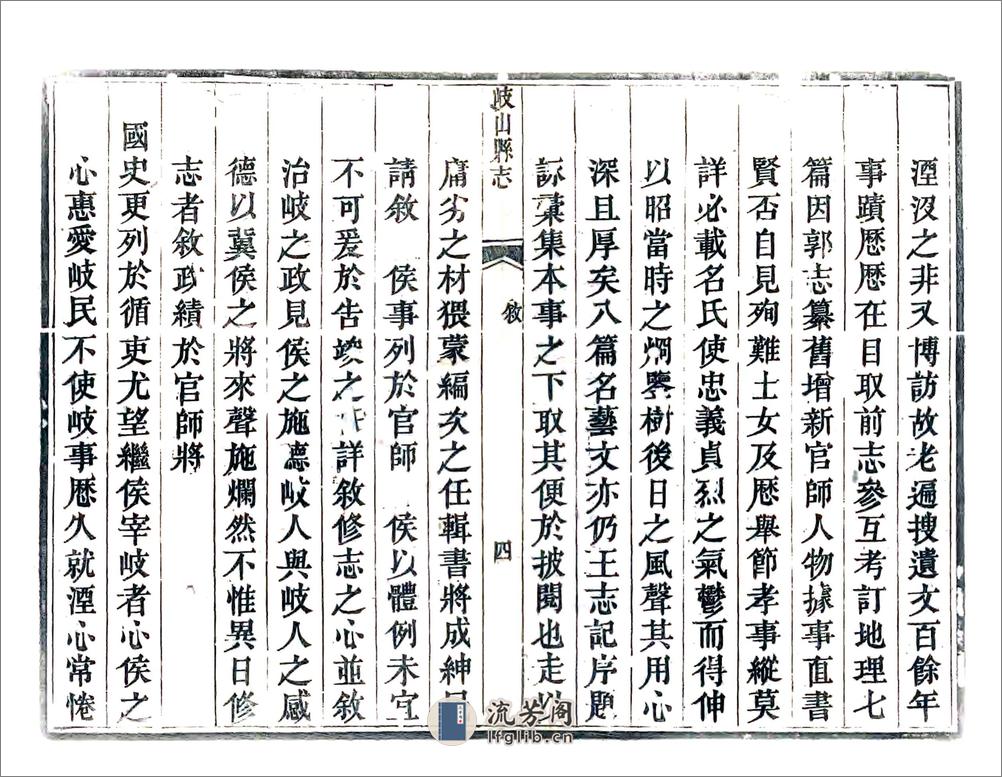 湮沒之非又博訪故老遍搜遺文百餘年
事蹟歷歷在目取前志參互考訂地理七
篇因郭志纂舊增新官師人物據事直書
賢否自見殉難士女及歷舉節孝事縱莫
詳必載名氏使忠義貞烈之氣鬱而得伸
以昭當時之烱鑒樹後日之風聲其用心
深且厚矣八篇名藝文亦仍王志記序題
詠彙集本事之下取其便於披閱也走以
岐山縣志
敘
四
庸劣之材猥蒙編次之任輯書將成紳民
請敘 侯事列於官師 侯以體例未宜
不可爰於告竣之 詳敘修志之心並敘
治岐之政見侯之施德岐人與岐人之感
德以冀侯之將來聲施爛然不惟異日修
志者敘政績於官師將
國史更列於循吏尤望繼侯宰岐者心侯之
心惠愛岐民不使岐事歷久就湮心常惓
流芳阁
lfglib.cn